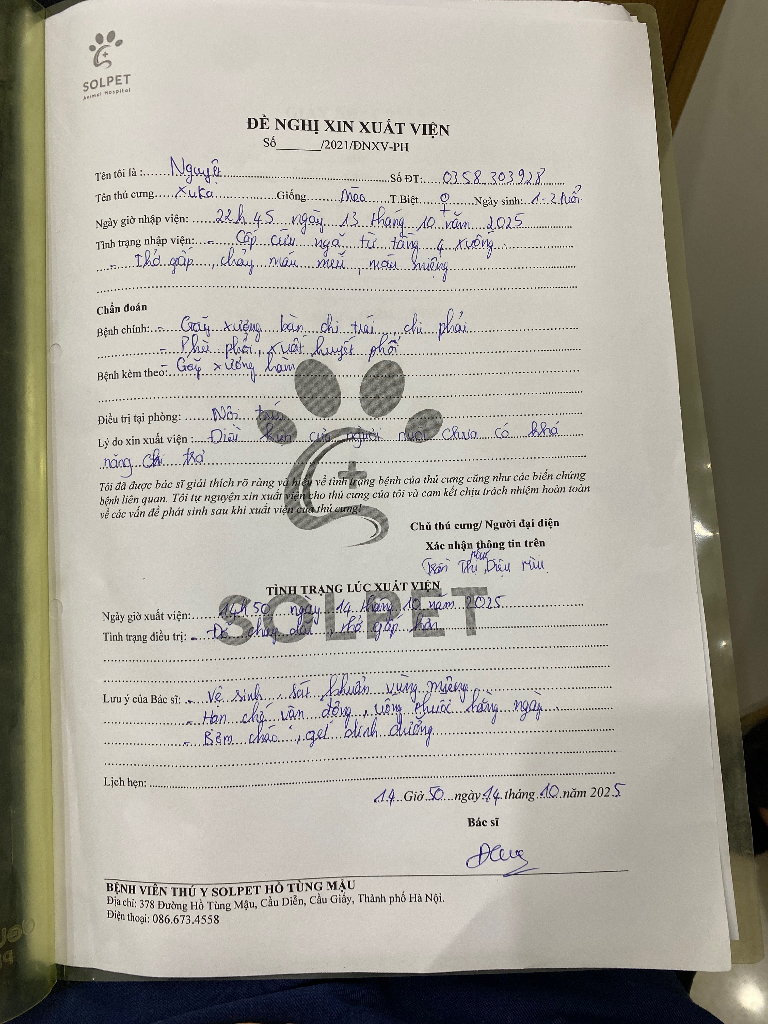 SOLPET
Animal Hospital
ĐỀ NGHỊ XIN XUẤT VIỆN
Số______/2021/ĐNXV-PH
Tên tôi là :.....Nguyệt.....Số ĐT:....0358.303.928
Tên thú cưng....xuka....Giống....Mèo....T.Biệt...♀...Ngày sinh: 1-2 tuổi
Ngày giờ nhập viện:....22h 45 ngày 13 tháng 10 năm 2025
Tình trạng nhập viện:..- Cấp cứu ngã từ tầng 4 xuống
- Thở gấp, chảy máu mũi, máu miệng
Chẩn đoán
Bệnh chính:- Gãy xương bàn chi trái, chi phải
- Phù phổi, xuất huyết phổi
Bệnh kèm theo:- Gãy xương hàm
Điều trị tại phòng:....Nội trú
Lý do xin xuất viện :...Điều kiện của người nuôi chưa có khả
năng chi trả
Tôi đã được bác sĩ giải thích rõ ràng và hiểu về tình trạng bệnh của thú cưng cũng như các biến chứng
bệnh liên quan. Tôi tự nguyện xin xuất viện cho thú cưng của tôi và cam kết chịu trách nhiệm hoàn toàn
về các vấn đề phát sinh sau khi xuất viện của thú cưng!
Chủ thú cưng/ Người đại diện
Xác nhận thông tin trên
Trần Thị Diệu
TÌNH TRẠNG LÚC XUẤT VIỆN
SOLPET
Ngày giờ xuất viện:....14h 50 ngày 14 tháng 10 năm 2025
Tình trạng điều trị:- Đỡ chảy dãi, thở gấp hơn
Lưu ý của Bác sĩ:- Vệ sinh, sát khuẩn vùng miệng
- Hạn chế vận động, uống thuốc hằng ngày
- Bơm cháo, gel dinh dưỡng
Lịch hẹn:
14..Giờ 50...ngày 14 tháng 10 năm 2025
Bác sĩ
BỆNH VIỆN THÚ Y SOLPET HỒ TÙNG MẬU
Địa chỉ: 378 Đường Hồ Tùng Mậu, Cầu Diễn, Cầu Giấy, Thành phố Hà Nội.
Điện thoại: 086.673.4558